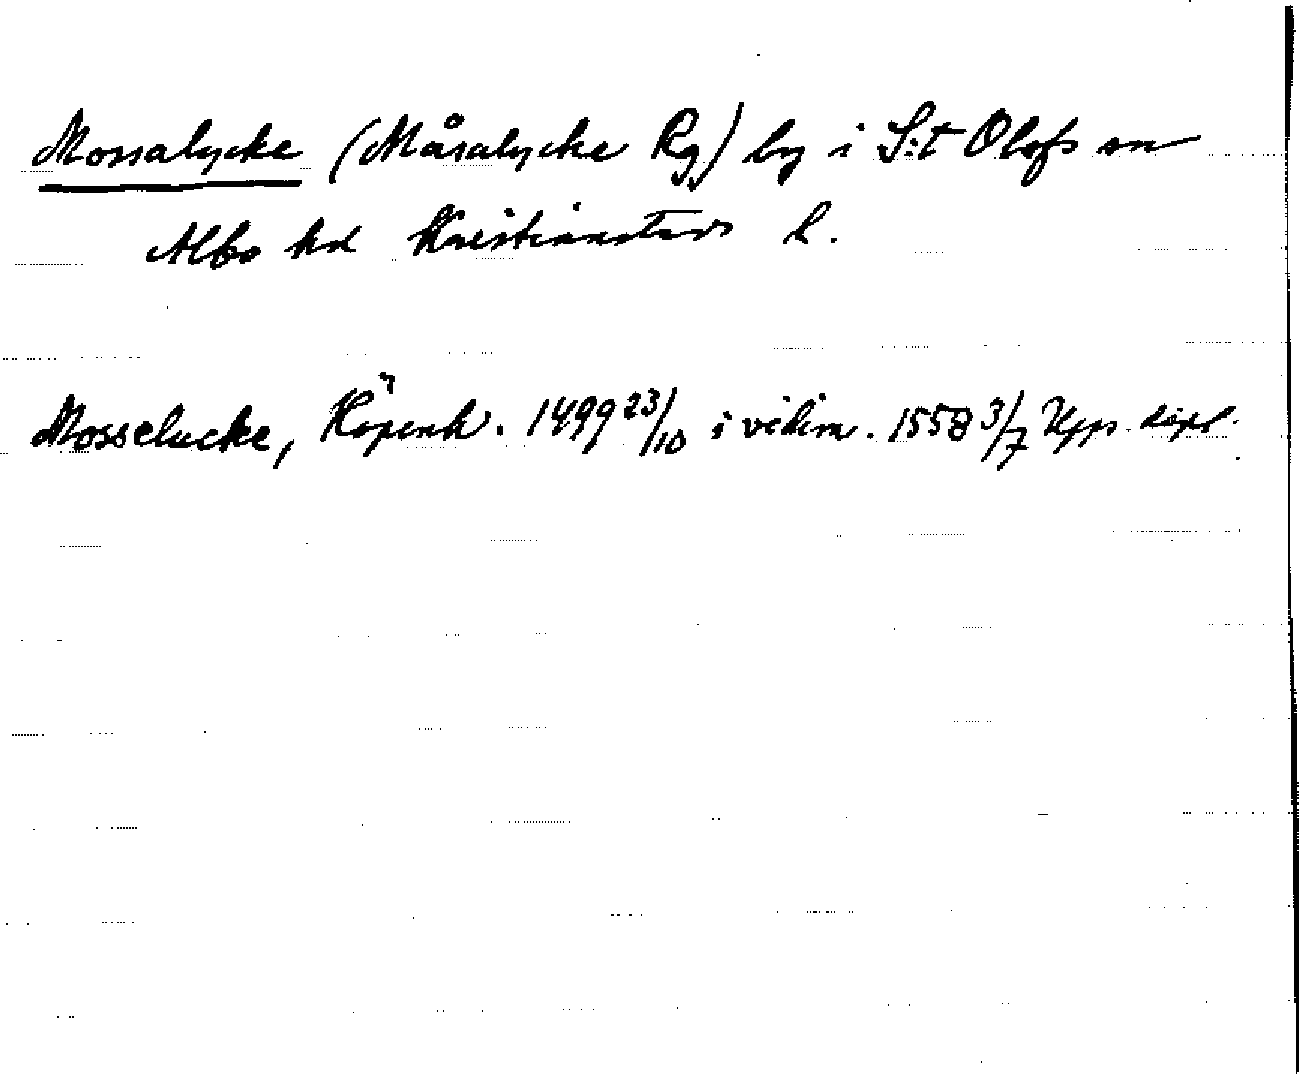 Mossalycke (Måsalycke Rg) by i S:t Olofs sn
Albo hd Kristianstads l.
Mosselucke, Köpenh. 1499 23/10 i vidim. 1558 3/7 Upps. dipl.